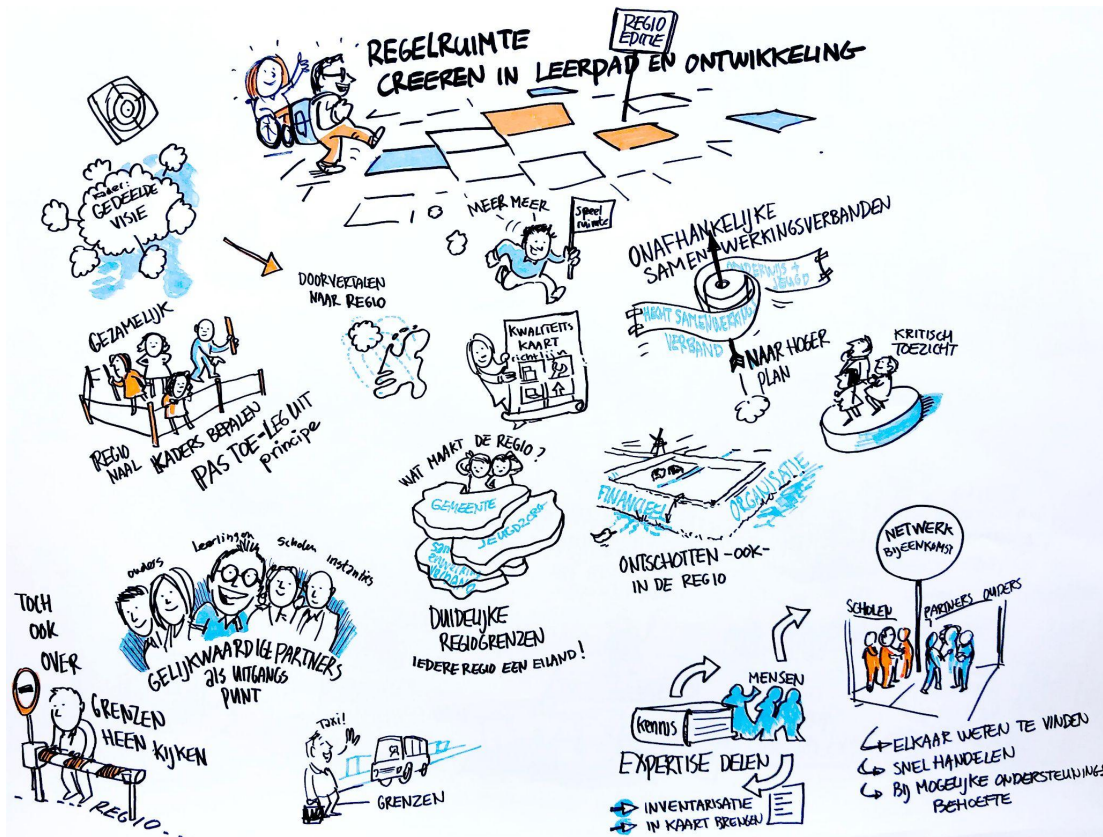 REGELRUIMTE
CREEREN IN LEERPAD EN ONTWIKKELING
REGIO
EDITIE
GEDEELDE
VISIE
DOORVERTALEN
NAAR REGIO
MEER MEER
Speel
ruimte
ONAFHANKELIJKE
SAMENWERKINGSVERBANDEN
ONDERWIJS +
JEUGD
HECHT SAMENWERKINGS
VERBAND
NAAR HOGER
PLAN
KRITISCH
TOEZICHT
GEZAMELIJK
REGIO
NAAL
KADERS BEPALEN
PAS TOE-LEG UIT
principe
KWALITEITS
KAART
richtlijn
WAT MAAKT DE REGIO?
GEMEENTE
JEUGDZORG
DUIDELIJKE
REGIOGRENZEN
IEDERE REGIO EEN EILAND!
FINANCIEEL
ORGANISATIE
ONTSCHOTTEN -OOK-
IN DE REGIO
ouders
Leerlingen
scholen
instanties
GELIJKWAARDIGE PARTNERS
als UITGANGS
PUNT
TOCH
OOK
OVER
GRENZEN
HEEN KIJKEN
REGIO
Taxi!
GRENZEN
kennis
MENSEN
EXPERTISE DELEN
INVENTARISATIE
IN KAART BRENGEN
NETWERK
BIJEENKOMST
SCHOLEN
PARTNERS OUDERS
ELKAAR WETEN TE VINDEN
SNEL HANDELEN
BIJ MOGELIJKE ONDERSTEUNINGS
BEHOEFTE